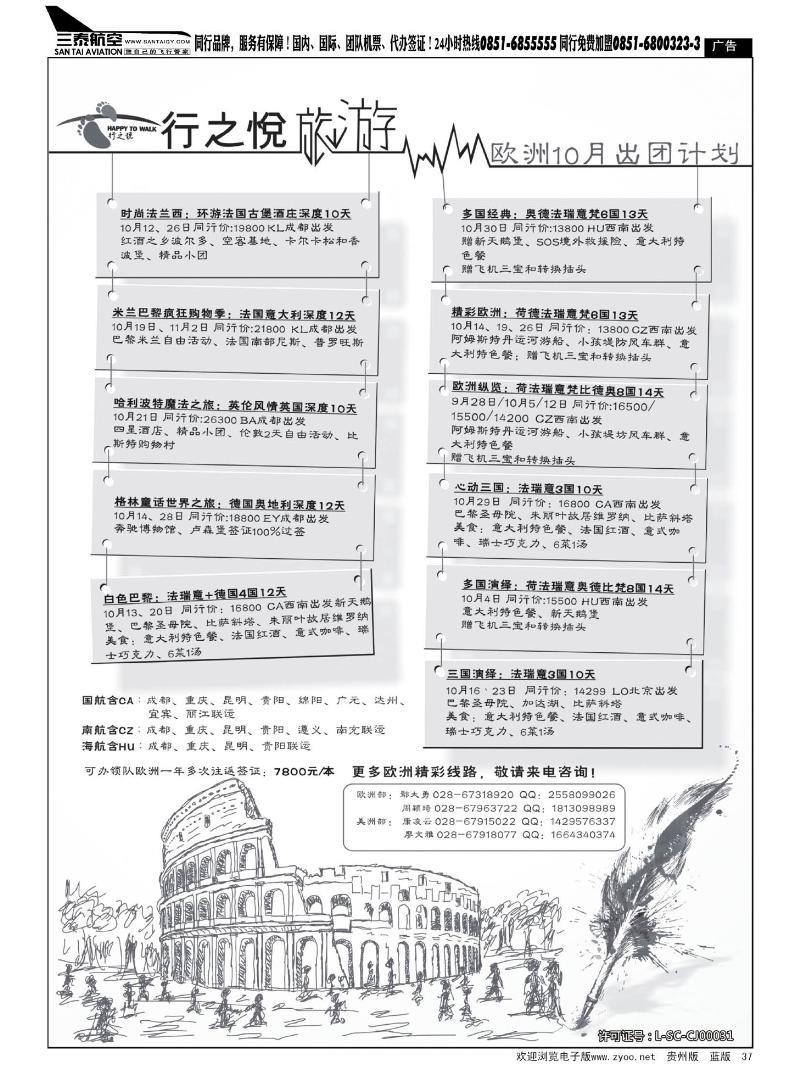 三泰航空
WWW.SANTAIGY.COM
SAN TAI AVIATION
微自己的飞行管家
同行品牌，服务有保障！国内、国际、团队机票、代办签证！24小时热线0851-6855555 同行免费加盟0851-6800323-3
广告
HAPPY TO WALK
行之悦
行之悦旅游
欧洲10月出团计划
时尚法兰西：环游法国古堡酒庄深度10天
10月12、26日 同行价:19800 KL成都出发
红酒之乡波尔多、空客基地、卡尔卡松和香
波堡、精品小团
米兰巴黎疯狂购物季：法国意大利深度12天
10月19日、11月2日 同行价:21800 KL成都出发
巴黎米兰自由活动、法国南部尼斯、普罗旺斯
哈利波特魔法之旅：英伦风情英国深度10天
10月21日 同行价:26300 BA成都出发
四星酒店、精品小团、伦敦2天自由活动、比
斯特购物村
格林童话世界之旅：德国奥地利深度12天
10月14、28日 同行价:18800 EY成都出发
奔驰博物馆、卢森堡签证100%过签
白色巴黎：法瑞意+德国4国12天
10月13、20日 同行价：16800 CA西南出发新天鹅
堡、巴黎圣母院、比萨斜塔、朱丽叶故居维罗纳
美食：意大利特色餐、法国红酒、意式咖啡、瑞
士巧克力、6菜1汤
多国经典：奥德法瑞意梵6国13天
10月30日 同行价:13800 HU西南出发
赠新天鹅堡、SOS境外救援险、意大利特
色餐
赠飞机三宝和转换插头
精彩欧洲：荷德法瑞意梵6国13天
10月14、19、26日 同行价：13800 CZ西南出发
阿姆斯特丹运河游船、小孩堤防风车群、意
大利特色餐；赠飞机三宝和转换插头
欧洲纵览：荷法瑞意梵比德奥8国14天
9月28日/10月5/12日 同行价:16500/
15500/14200 CZ西南出发
阿姆斯特丹运河游船、小孩堤坊风车群、意
大利特色餐
赠飞机三宝和转换插头
心动三国：法瑞意3国10天
10月29日 同行价：16800 CA西南出发
巴黎圣母院、朱丽叶故居维罗纳、比萨斜塔
美食：意大利特色餐、法国红酒、意式咖
啡、瑞士巧克力、6菜1汤
多国演绎：荷法瑞意奥德比梵8国14天
10月4日 同行价:15500 HU西南出发
意大利特色餐、新天鹅堡
赠飞机三宝和转换插头
三国演绎：法瑞意3国10天
10月16、23日 同行价：14299 LO北京出发
巴黎圣母院、加达湖、比萨斜塔
美食：意大利特色餐、法国红酒、意式咖啡、
瑞士巧克力、6菜1汤
国航含CA：成都、重庆、昆明、贵阳、绵阳、广元、达州、
宜宾、丽江联运
南航含CZ：成都、重庆、昆明、贵阳、遵义、南充联运
海航含HU：成都、重庆、昆明、贵阳联运
可办领队欧洲一年多次往返签证：7800元/本
更多欧洲精彩线路，敬请来电咨询！
欧洲部：邹大勇 028-67318920 QQ：2558099026
周颖琦 028-67963722 QQ：1813098989
美洲部：康凌云 028-67915022 QQ：1429576337
廖文雅 028-67918077 QQ：1664340374
许可证号：L-SC-CJ00031
欢迎浏览电子版www.zyoo.net 贵州版 蓝版 37